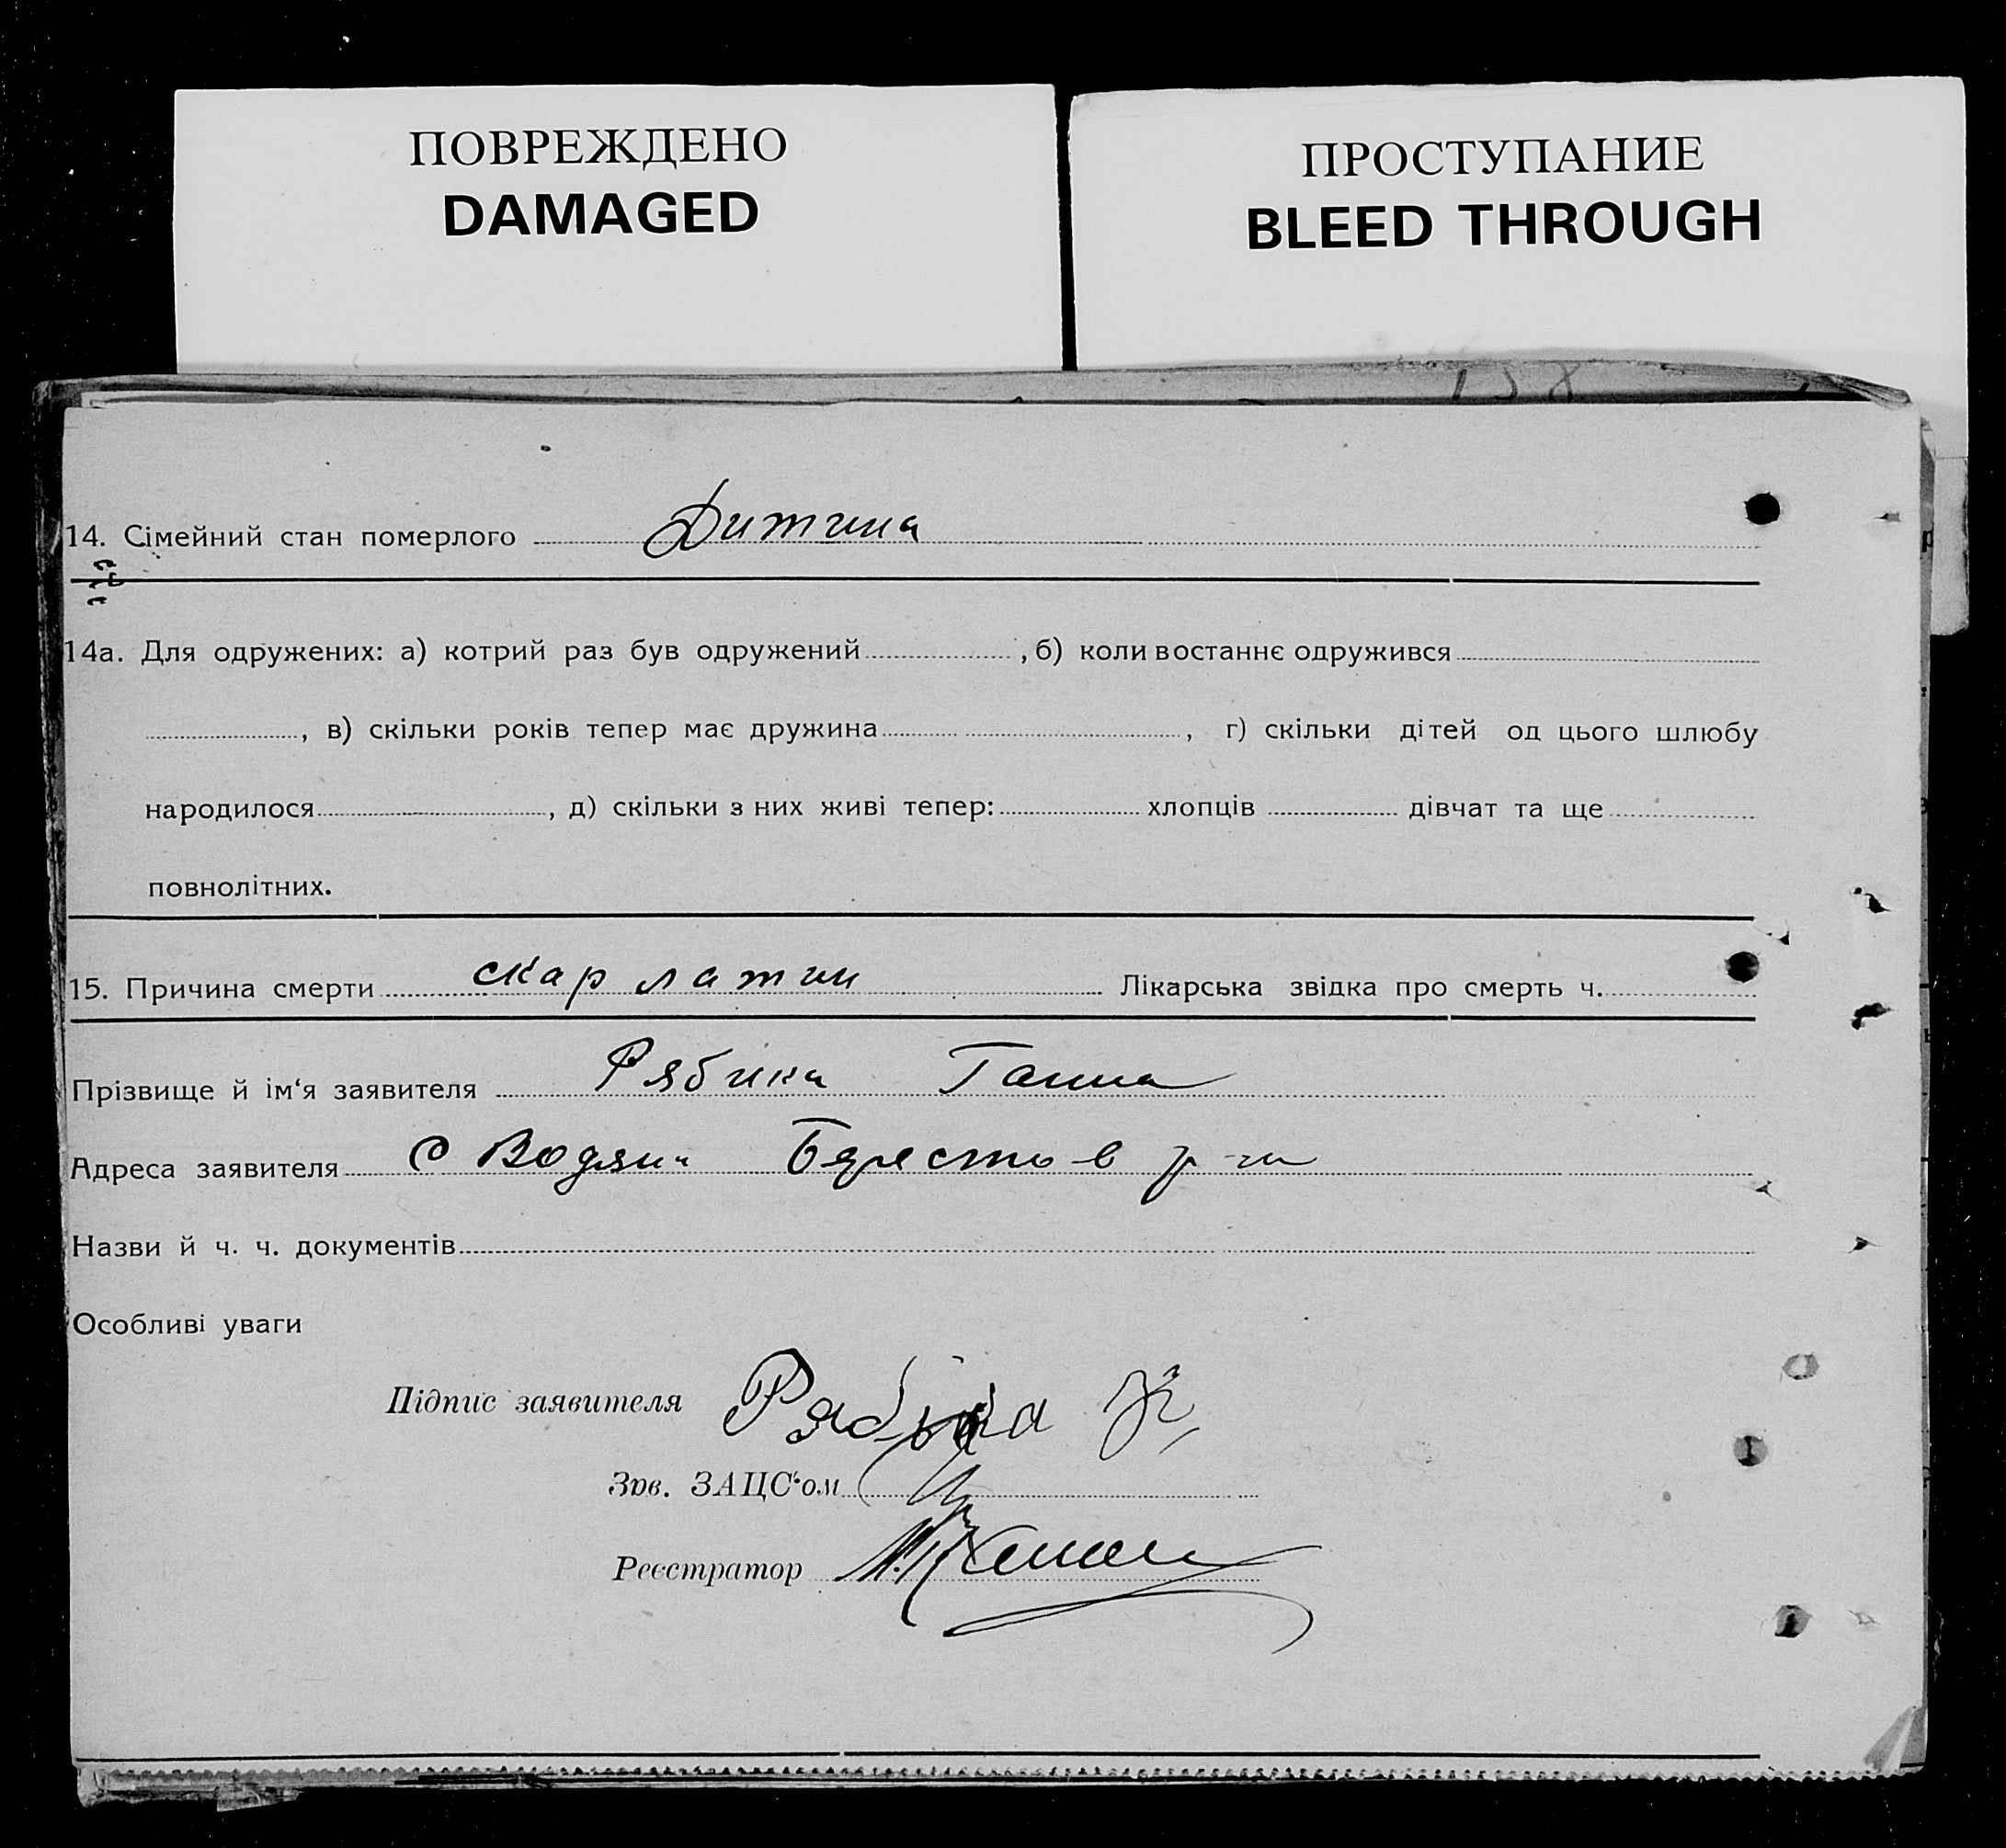 ПОВРЕЖДЕНО
DAMAGED
ПРОСТУПАНИЕ
BLEED THROUGH
158
14. Сімейний стан померлого Дитина
14а. Для одружених: а) котрий раз був одружений , б) коли востаннє одружився
, в) скільки років тепер має дружина , г) скільки дітей од цього шлюбу
народилося , д) скільки з них живі тепер: хлопців дівчат та ще
повнолітних.
15. Причина смерти скарлатин Лікарська звідка про смерть ч.
Прізвище й ім‘я заявителя Рябика Ганна
Адреса заявителя с Водяни р-ну
Назви й ч. ч. документів
Особливі уваги
Підпис заявителя
Зав. ЗАЦС‘ом
Реєстратор